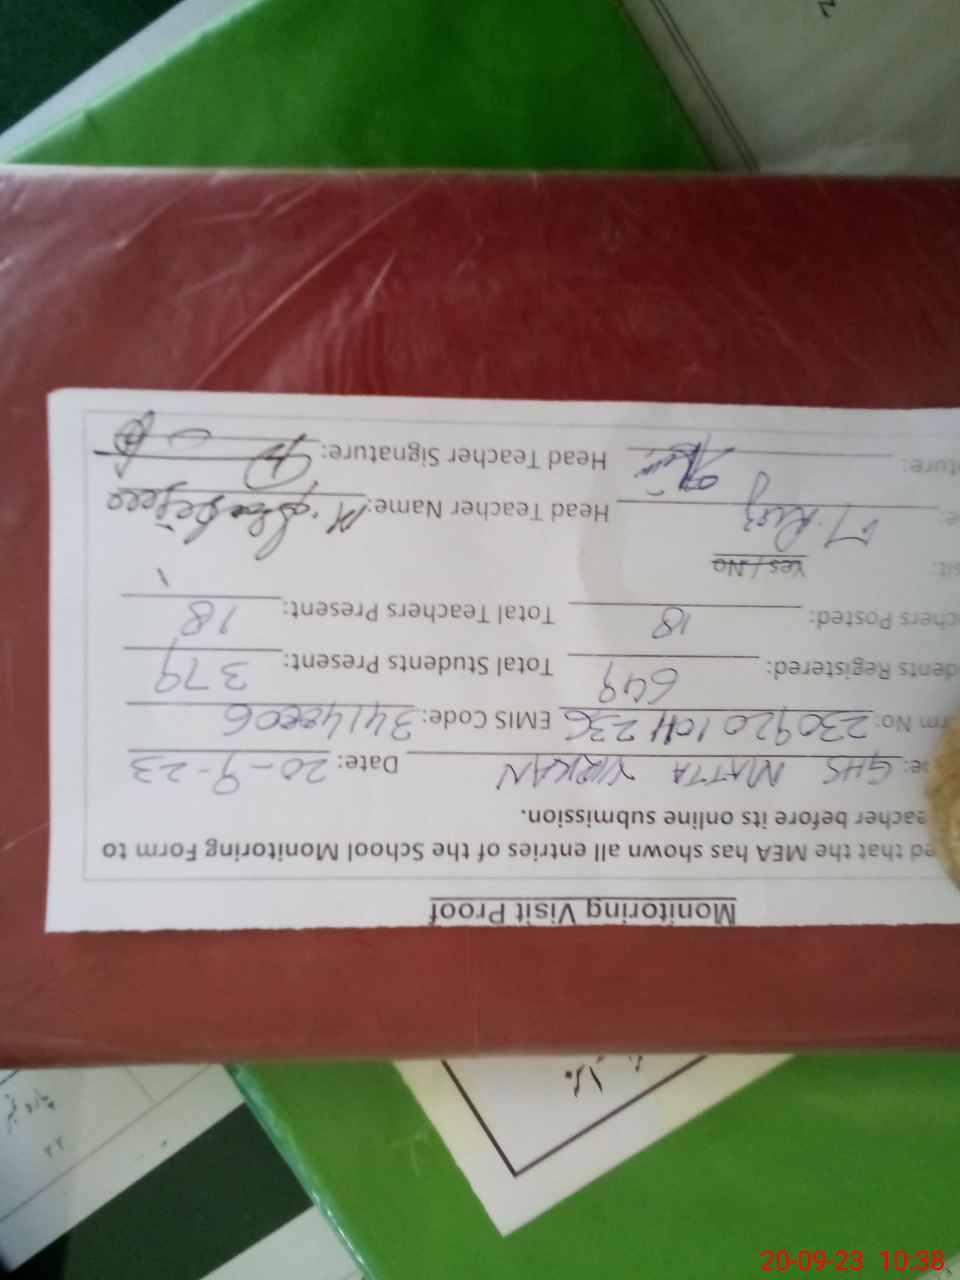 Monitoring Visit Proof
ed that the MEA has shown all entries of the School Monitoring Form to
eacher before its online submission.
e: GHS MATTA VIRKAN Date: 20-9-23
rm No: EMIS Code:
dents Registered: 649 Total Students Present: 379
chers Posted: 18 Total Teachers Present: 18
sit: Yes / No
e: M. Riaz Head Teacher Name: M.
ture: Head Teacher Signature:
20-09-23 10:38